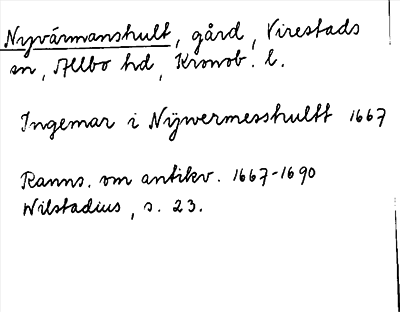 Nyvärmanshult, gård, Virestads
sn, Allbo hd, Kronob. l.
Ingemar i Nÿwermesshultt 1667
Ranns. om antikv. 1667-1690
Wilstadius, s. 23.